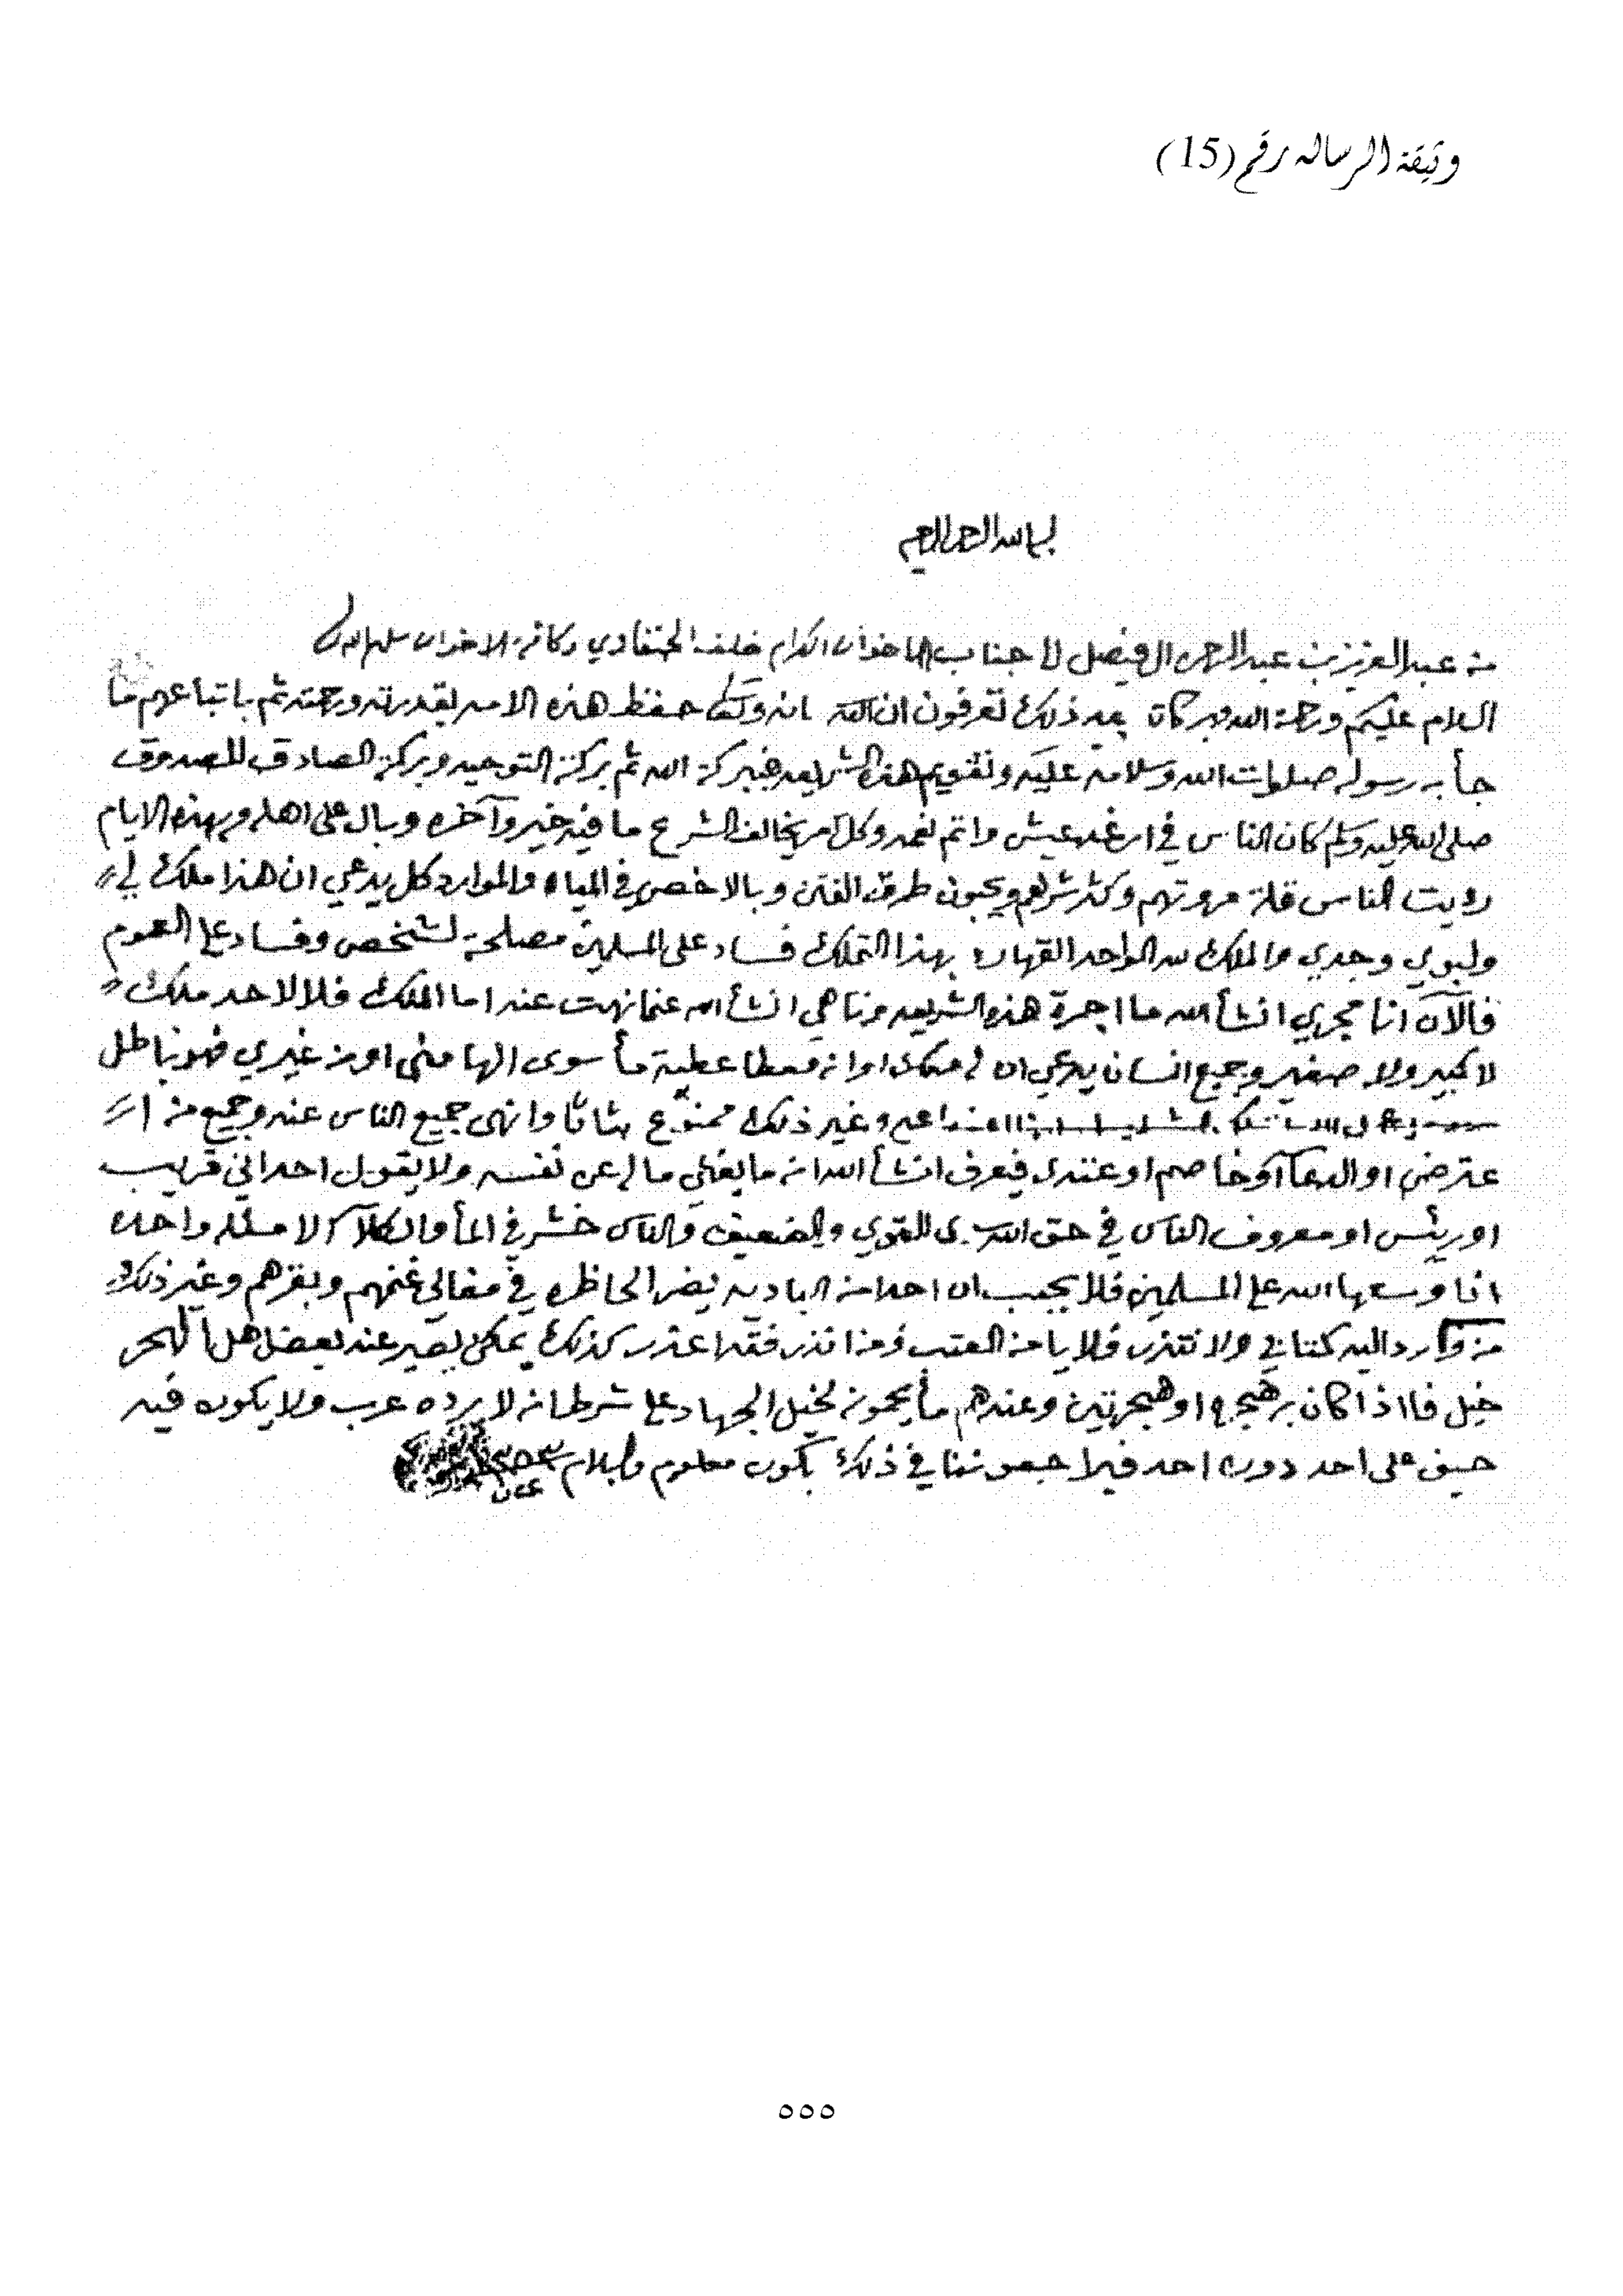 وثيقة الرساله رقم (15)
بسم الله الرحمن الرحيم
من عبد العزيز بن عبد الرحمن ال فيصل لا جناب الاخوان الكرام خلف الختفادي وكافة الاخوان سلمهم الله
السلام عليكم ورحمة الله وبركاته بعد ذلك تعرفون ان الله حفظ هذه الامه بقدرته ورحمته ثم باتباعهم ما
جأ به رسوله صلوات الله وسلامه عليه وتقويم هذه الشريعه فببركة الله ثم بركة التوحيد وبركة الصادق المصدوق
صلى الله عليه وسلم كان الناس في ارغد عيش واتم نعمه وكل امر يخالف الشرع ما فيه خير وآخره وبال على اهله وبهذه الايام
رؤيت الناس قلة مروتهم وكثر شرهم ويحبون طرق الفتن وبالاخص في المياه والموارد كل يدعي ان هذا ملك لي
ولبوي وجدي والملك لله الواحد القهار بهذا التملك فساد على المسلمين مصلحة لشخص وفساد على العموم
فالآن انا مجري انشأ الله ما اجرة هذه الشريعه وناهي انشأ الله عنما نهت عنه اما الملك فلا لاحد ملك
لا كبير ولا صغير وجميع انسان يدعي ان له ملك او انه معطا عطية مأ سوى انها مني او من غيري فهو باطل
وغير ذلك ممنوع بتاتاً وانهى جميع الناس عنه وجميع من ا
عترض او ادعآ او خاصم او عتدى فيعرف انشأ الله انه ما يغلي ماله عن نفسه ولا يقول احد اني قريب
او رئيس او معروف الناس في حق الله سوى القوي والضعيف والناس خشر في المأ والكلآ الا مسئله واحده
انا وسعها الله على المسلمين فلا يجب ان احد من الباديه يضر الحاظره في مفالي غنمهم وبقرهم وغير ذلك
من وارد اليه كتابي ولا نتذر فلا يامن العتب ومن انذر فقد اعذر كذلك يمكن يصير عند بعض اهل الهجر
خيل فااذا كان بهجره او هجرتين وعندهم مأ يحمونه لخيل الجهاد على شرط انه لا يرده عرب ولا يكون فيه
حيف على احد دون احد فيراجعوننا في ذلك يكون معلوم والسلام
٥٥٥